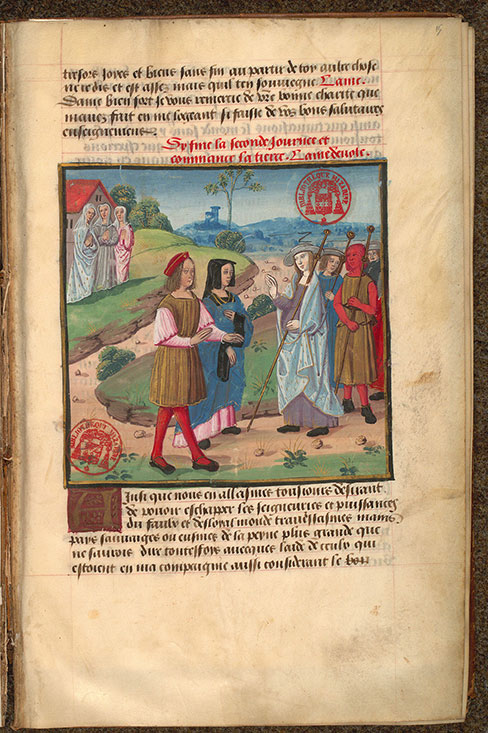 tresors joyes et biens sans fin au partir de toy aultre chose
ne te dis et est assez mais quil ten souviegne Lame.
Dame bien fort je vous remercie de vre bonne charite que
mavez fait en me logeant si faisie de voz bons salutaires
enseignemens
Cy fine la seconde Journee et
commance la tierce. Lame devote.
Ainsi que nous en allasmes tousjours desirant
de povoir eschaper les seigneuries et puissances
du faulx et desloyal monde traversasmes mains
pays sauvaiges ou eusmes de la peyne plus grande que
ne sauroie dire toutesfoys avecques laide de ceulx qui
estoient en ma compaignie aussi considerant le bon